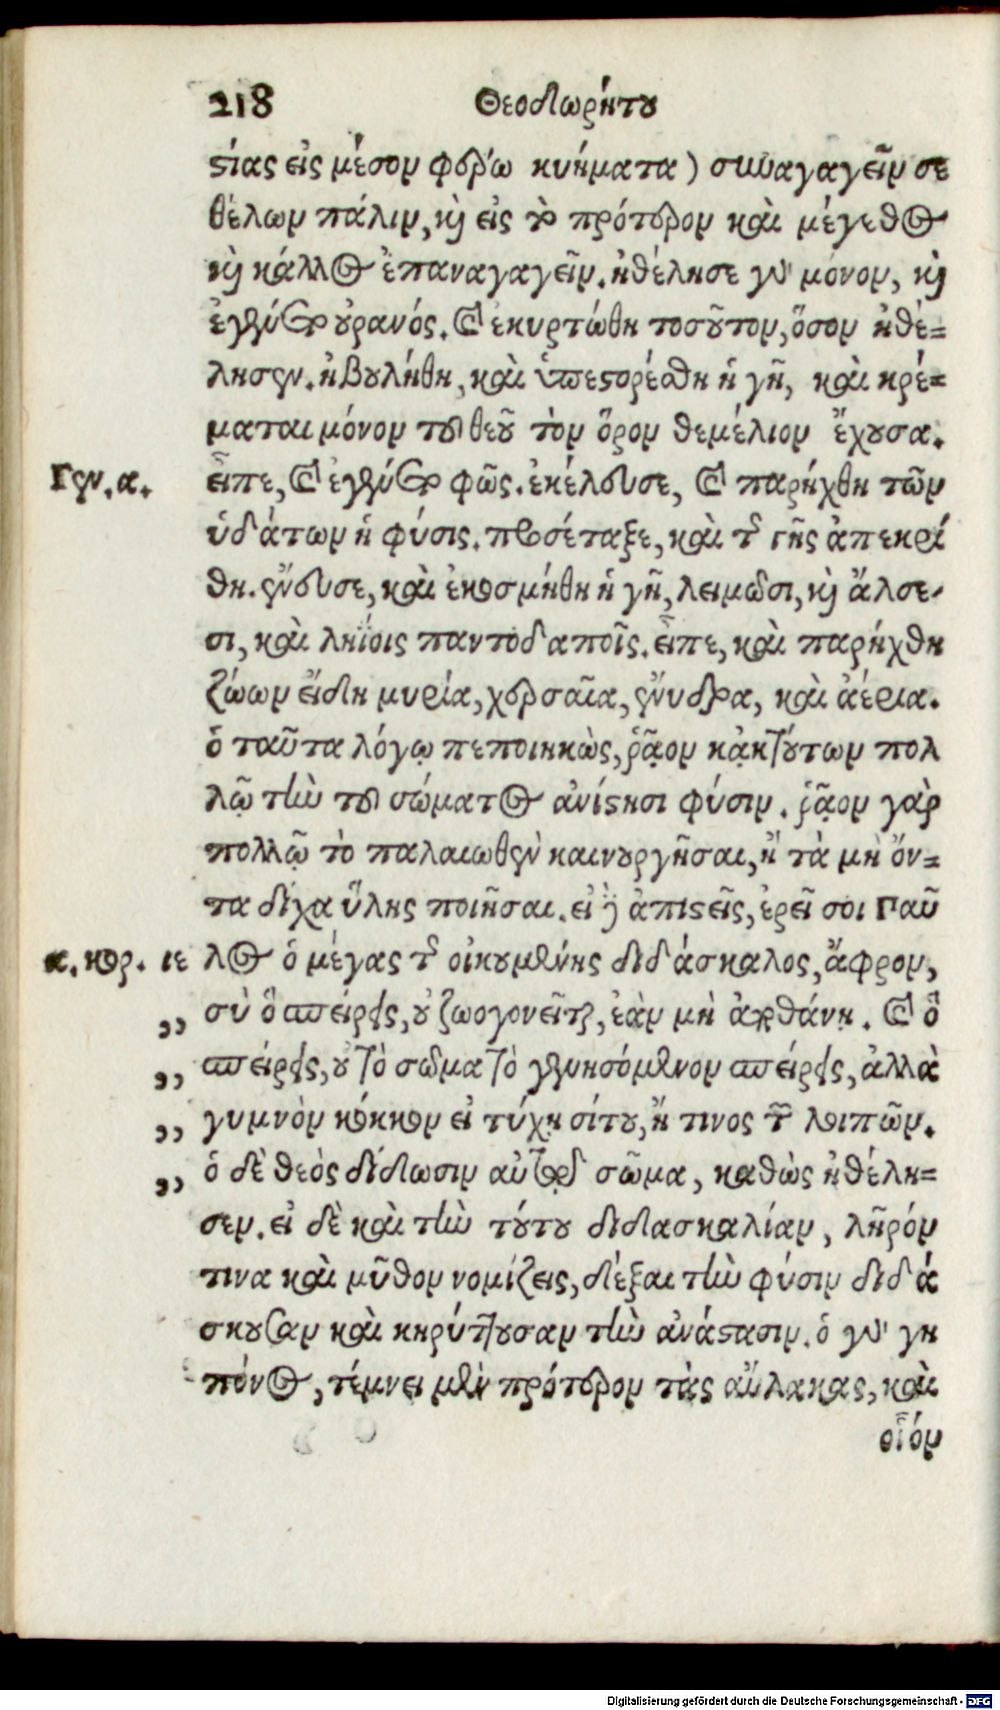 218 Θεοδωρήτου
στίας εἰς μέσον φέρω κυήματα) συναγαγεῖν σε
θέλων πάλιν, καὶ εἰς τὸ πρότερον καὶ μέγεθος
καὶ κάλλος ἐπαναγαγεῖν. ἠθέλησε γοῦν μόνον, καὶ
ἐγένετο οὐρανός. καὶ ἐκυρτώθη τοσοῦτον, ὅσον ἠθέ-
λησεν. ἠβουλήθη, καὶ ὑπεστορέσθη ἡ γῆ, καὶ κρέ-
μαται μόνον τοῦ θεοῦ τὸν ὅρον θεμέλιον ἔχουσα.
Γεν. α. εἶπε, καὶ ἐγένετο φῶς. ἐκέλευσε, καὶ παρήχθη τῶν
ὑδάτων ἡ φύσις. προσέταξε, καὶ τῆς γῆς ἀπεκρί
θη. ἔνευσε, καὶ ἐκοσμήθη ἡ γῆ, λειμῶσι, καὶ ἄλσε-
σι, καὶ ληΐοις παντοδαποῖς. εἶπε, καὶ παρήχθη
ζώων εἴδη μυρία, χερσαῖα, ἔνυδρα, καὶ ἀέρια.
ὁ ταῦτα λόγῳ πεποιηκὼς, ῥᾷον κᾀκ τούτων πολ
λῷ τὴν τοῦ σώματος ἀνίστησι φύσιν. ῥᾷον γὰρ
πολλῷ τὸ παλαιωθὲν καινουργῆσαι, ἢ τὰ μὴ ὄν-
τα δίχα ὕλης ποιῆσαι. εἰ δὲ ἀπιστεῖς, ἐρεῖ σοι Παῦ
α. κορ. ιε λος ὁ μέγας τῆς οἰκουμένης διδάσκαλος, ἄφρον,
,, σὺ ὃ σπείρεις, οὐ ζωογονεῖται, ἐὰν μὴ ἀποθάνῃ. καὶ ὃ
,, σπείρεις, οὐ τὸ σῶμα τὸ γενησόμενον σπείρεις, ἀλλὰ
,, γυμνὸν κόκκον εἰ τύχῃ σίτου, ἤ τινος τῶν λοιπῶν.
,, ὁ δὲ θεὸς δίδωσιν αὐτῷ σῶμα, καθὼς ἠθέλη-
σεν. εἰ δὲ καὶ τὴν τούτου διδασκαλίαν, λῆρόν
τινα καὶ μῦθον νομίζεις, δέξαι τὴν φύσιν διδά
σκουσαν καὶ κηρύττουσαν τὴν ἀνάστασιν. ὁ γοῦν γη
πόνος, τέμνει μὲν πρότερον τὰς αὔλακας, καὶ
οἷόν
Digitalisierung gefördert durch die Deutsche Forschungsgemeinschaft - DFG